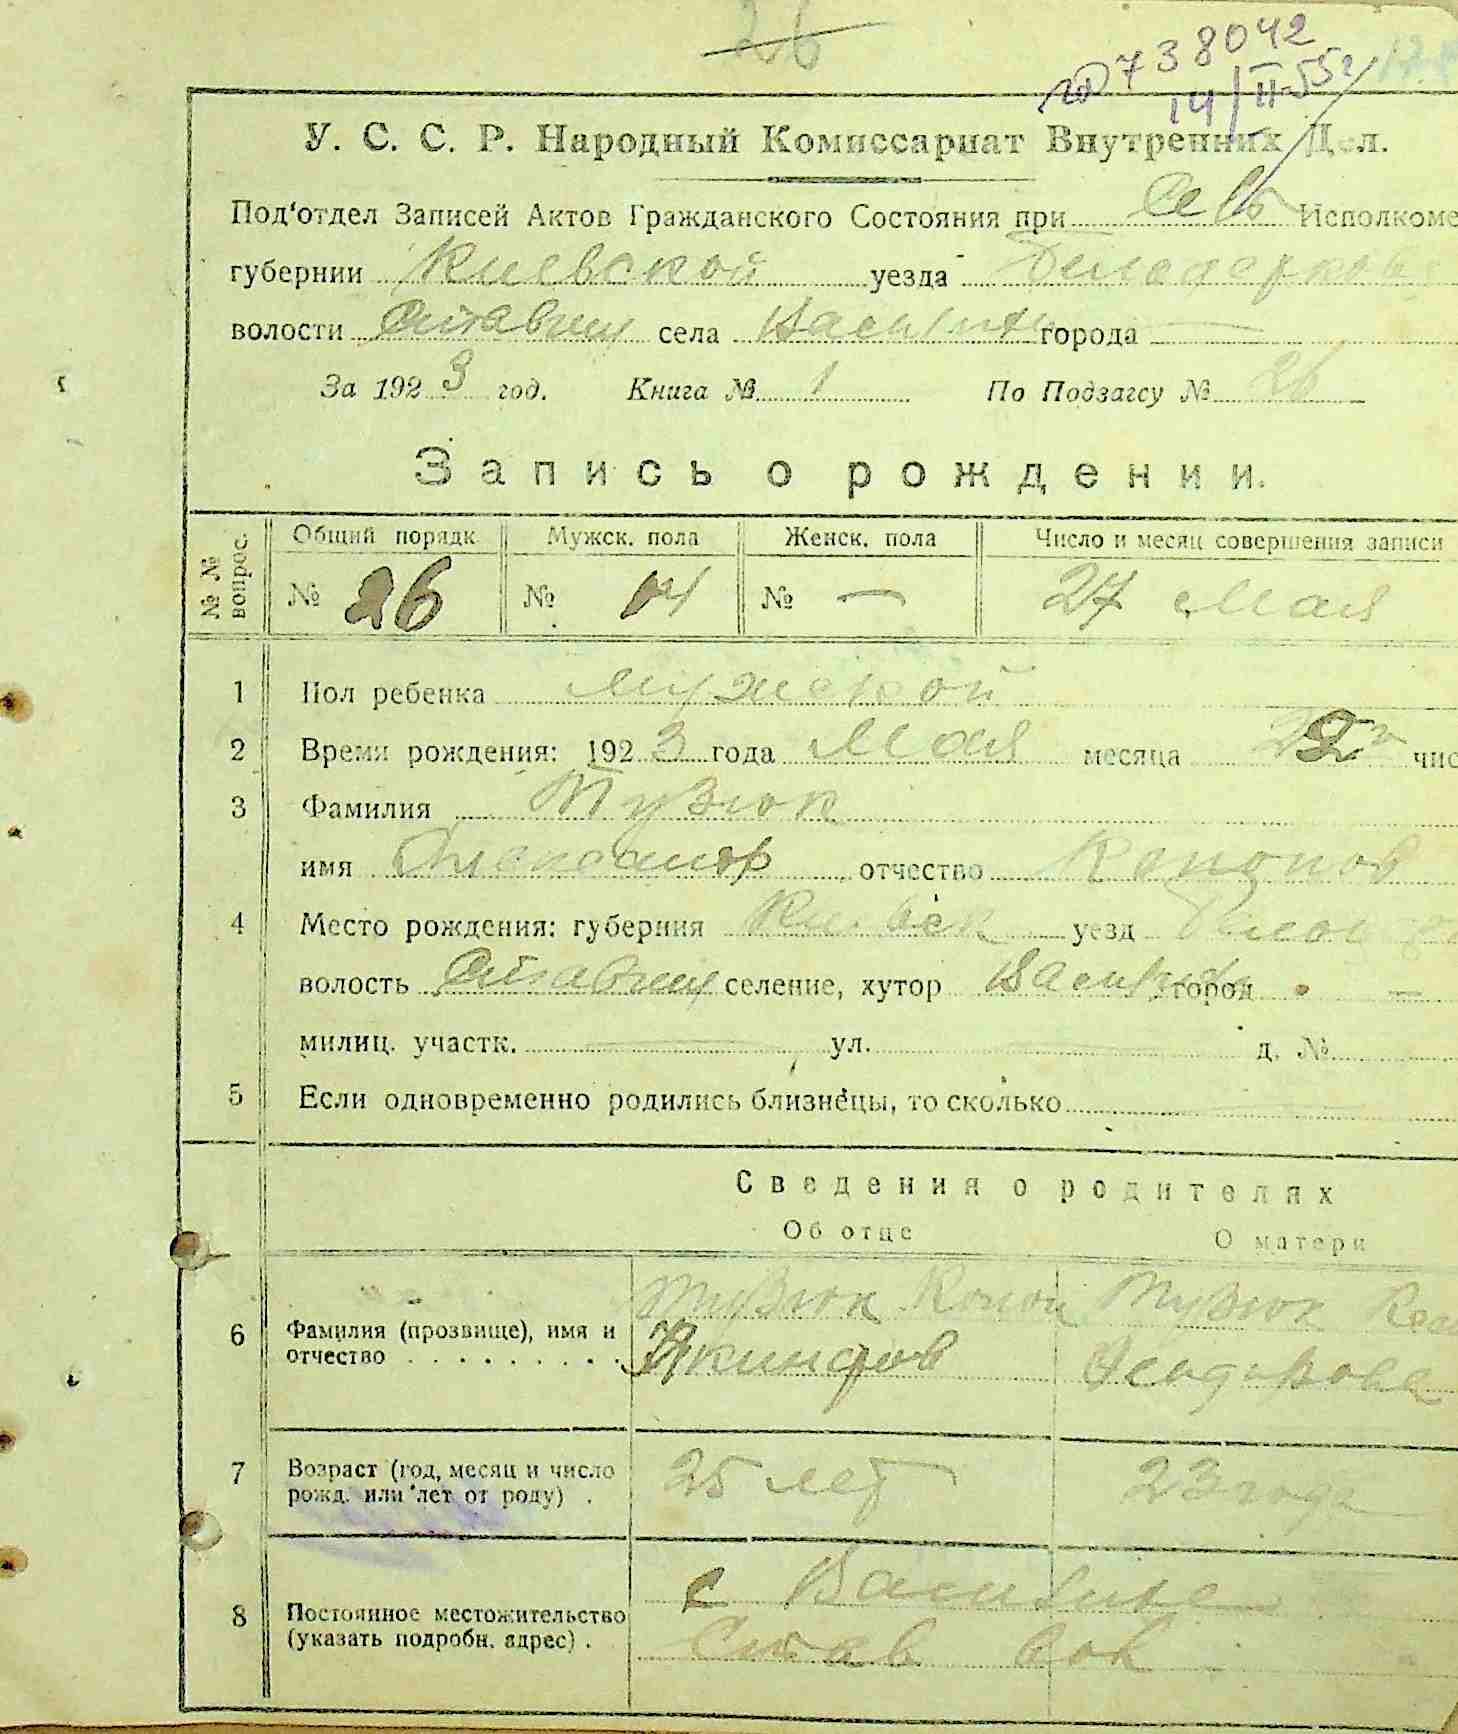 26
738042
14/II-55г
У. С. С. Р. Народный Комиссариат Внутренних Дел.
Под'отдел Записей Актов Гражданского Состояния при Сель Исполкоме
губернии Киевской уезда Билоцерковс
волости Ставищ села города —
За 1923 год. Книга № 1 По Подзагсу № 26
Запись о рождении.
№ № вопрос.
Общий порядк Мужск. пола Женск. пола Число и месяц совершения записи
№ 26 № 14 № — 27 Мая
1 Пол ребенка мужской
2 Время рождения: 1923 года Мая месяца 22 чис
3 Фамилия Тузюк
имя Александр отчество Кононов
4 Место рождения: губерния Киевск уезд
волость Ставищ селение, хутор город —
милиц. участк. — ул. — д. №
5 Если одновременно родились близнецы, то сколько —
Сведения о родителях
Об отце О матери
6 Фамилия (прозвище), имя и отчество
Тузюк Конон Тузюк
Якинфов Феодоровна
7 Возраст (год, месяц и число рожд. или лет от роду) .
25 лет 23 года
8 Постоянное местожительство (указать подробн. адрес) .
с
Став вол